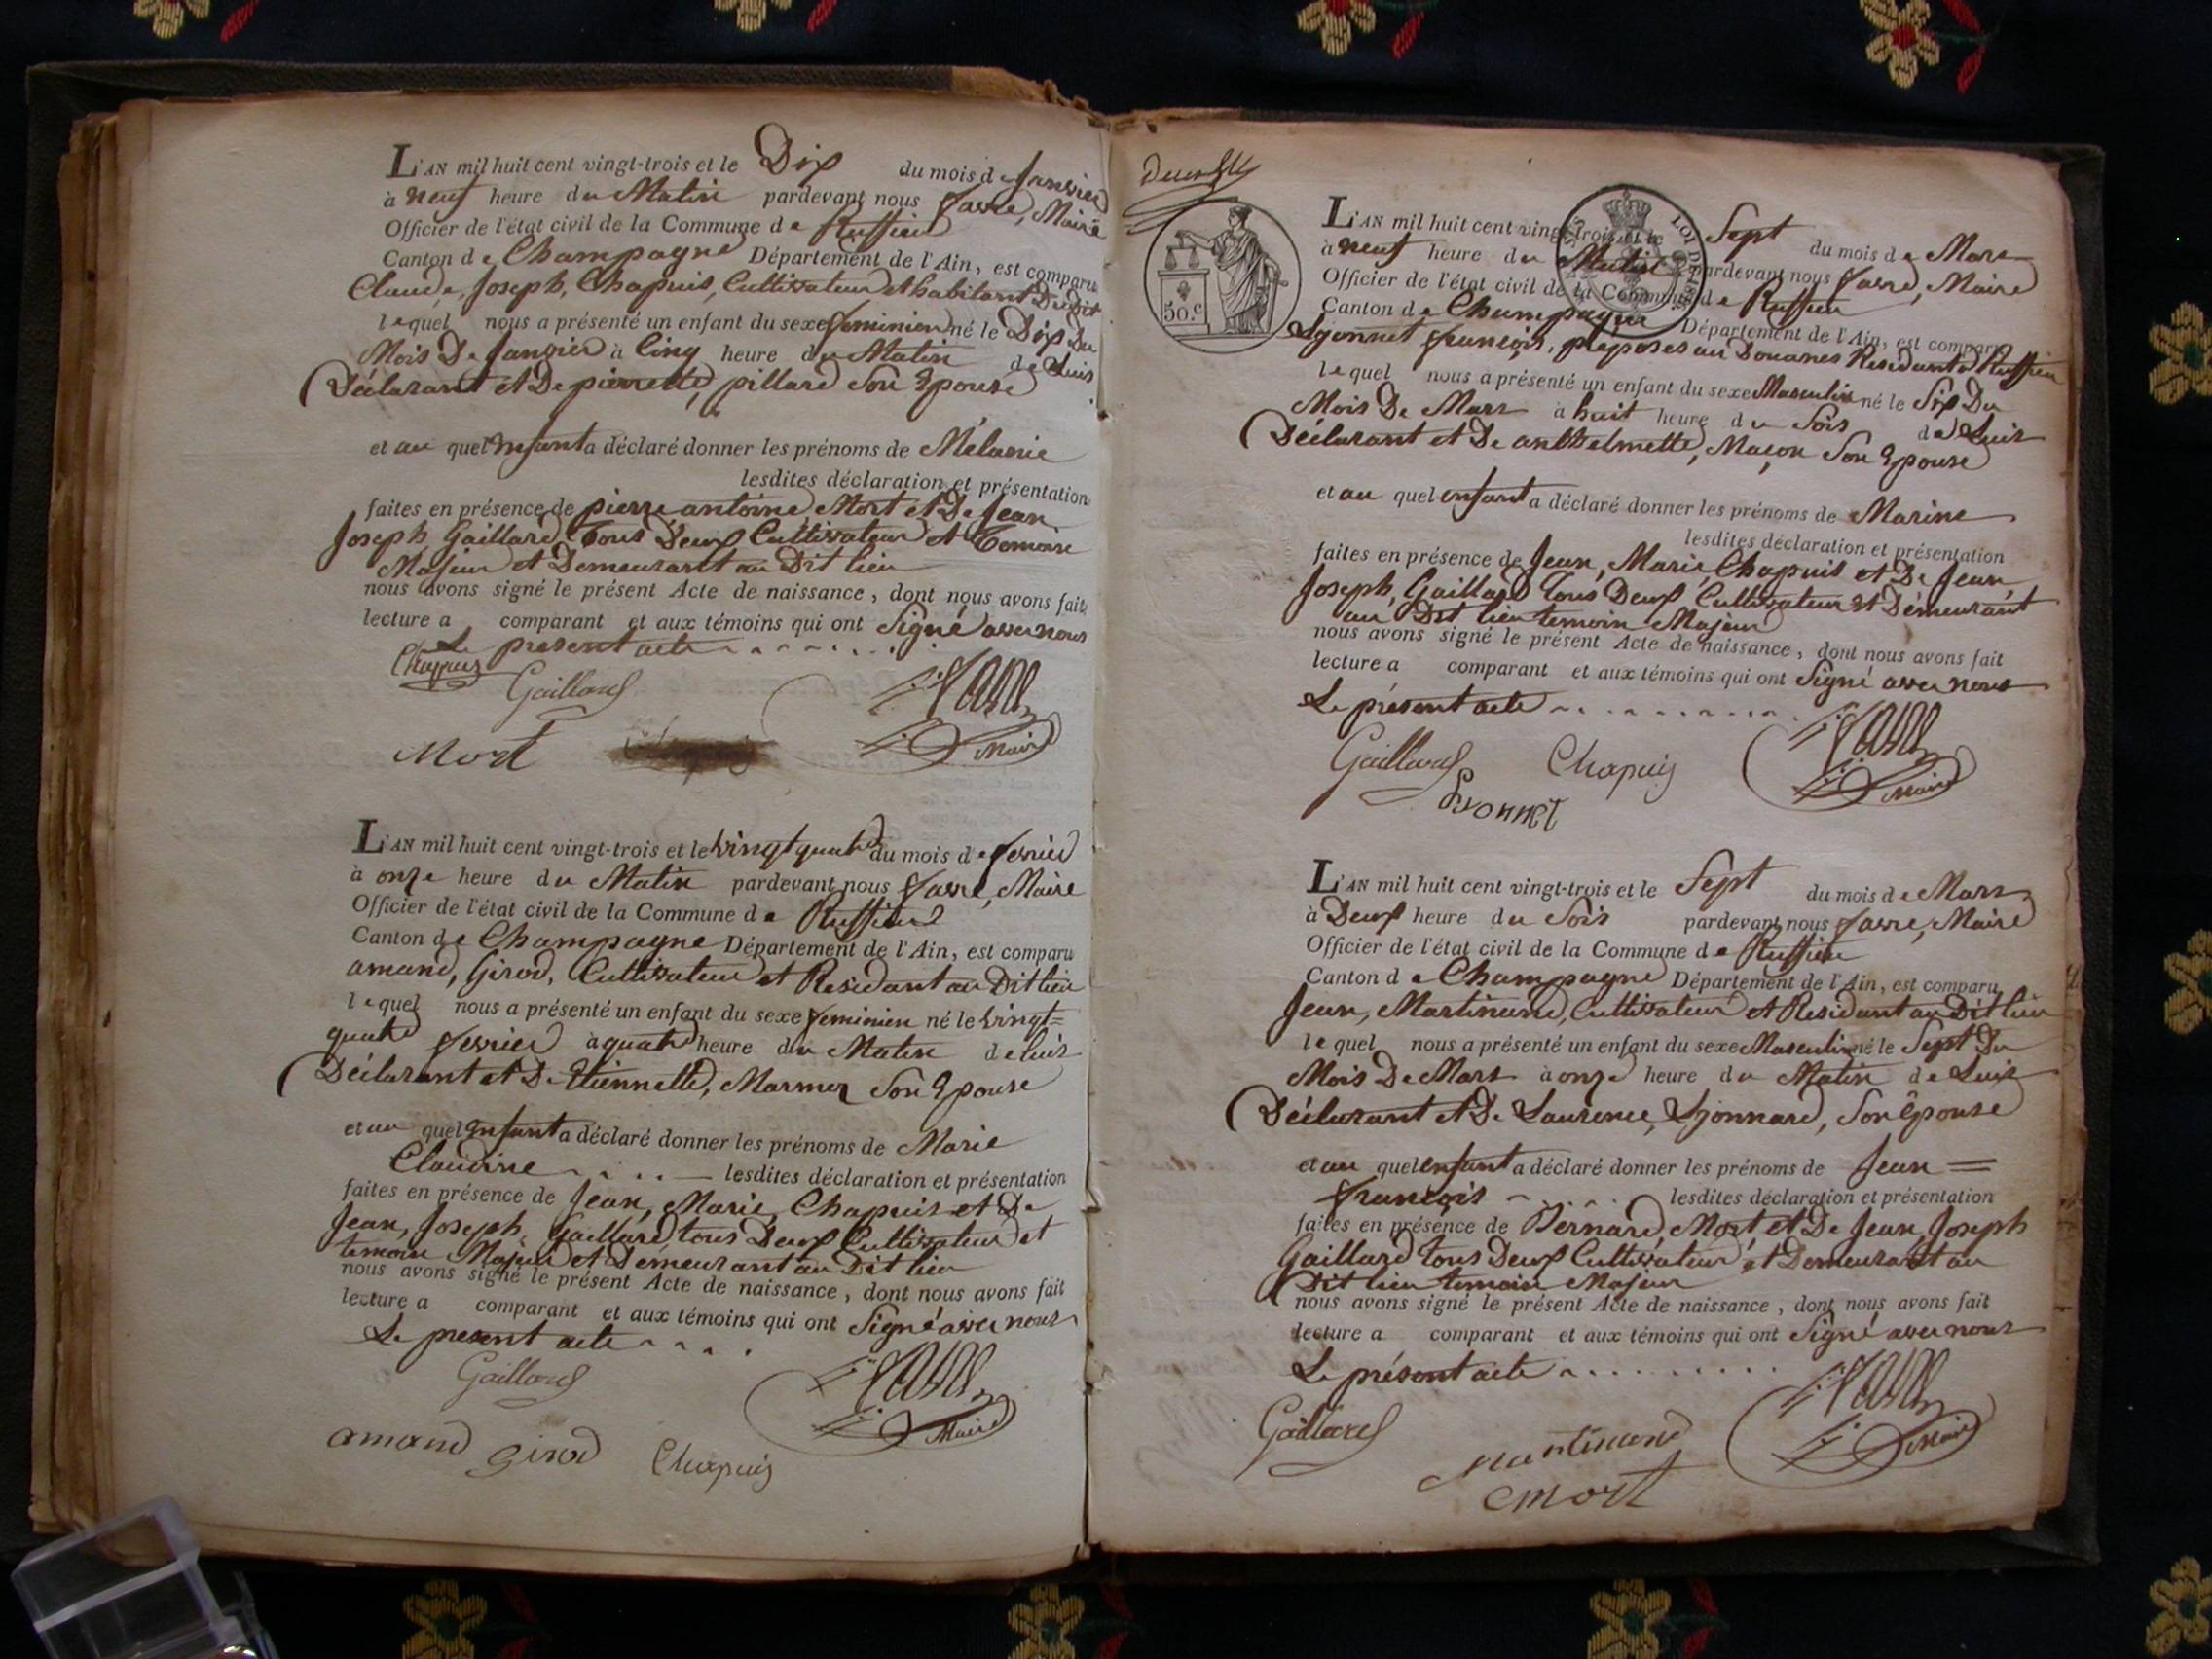 L'AN mil huit cent vingt-trois et le Dix du mois de Janvier
à neuf heure du Matin pardevant nous favre, Maire
Officier de l'état civil de la Commune de Ruffieu
Canton de Champagne Département de l'Ain, est comparu
Claude, Joseph, Chapuis, Cultivateur et habitant Du dit
lequel nous a présenté un enfant du sexe feminien né le Dix Du
Mois De Janvier à Cinq heure du Matin de Luis
Déclarant et De pierrette, pillard Son Epouse
et au quel Enfant a déclaré donner les prénoms de Mélanie
lesdites déclaration et présentation
faites en présence de pierre antoine Mort et De Jean
Joseph Gaillard Tous Deux Cultivateur et Temoin
Majeur et Demeurant au Dit lieu
nous avons signé le présent Acte de naissance, dont nous avons fait
lecture a comparant et aux témoins qui ont Signé avec nous
Le present acte
Chapuis
Gaillard
favre
Mort
Maire
L'AN mil huit cent vingt-trois et le vingt quatre du mois de fevrier
à onze heure du Matin pardevant nous favre, Maire
Officier de l'état civil de la Commune de Ruffieu
Canton de Champagne Département de l'Ain, est comparu
amand, Girod, Cultivateur et Residant au Dit lieu
lequel nous a présenté un enfant du sexe feminien né le vingt=
quatre fevrier à quatre heure du Matin de luis
Déclarant et De Etiennette, Marmer Son Epouse
et au quel Enfant a déclaré donner les prénoms de Marie
Claudine lesdites déclaration et présentation
faites en présence de Jean, Marie, Chapuis et De
Jean, Joseph, Gaillard tous Deux Cultivateur et
temoin Majeur et Demeurant au Dit lieu
nous avons signé le présent Acte de naissance, dont nous avons fait
lecture a comparant et aux témoins qui ont Signé avec nous
Le present acte
Gaillard
favre
Maire
amand girod Chapuis
50.c
LOI DE
L'AN mil huit cent vingt-trois et le Sept du mois de Mars
à neuf heure du Matin pardevant nous favre, Maire
Officier de l'état civil de la Commune de Ruffieu
Canton de Champagne Département de l'Ain, est comparu
Lyonnet francois, préposés au Douanes Residant à Ruffieu
lequel nous a présenté un enfant du sexe Masculin né le Six Du
Mois De Mars à huit heure du Soir de Luis
Déclarant et De anthelmette, Maçon Son Epouse
et au quel enfant a déclaré donner les prénoms de Marine
lesdites déclaration et présentation
faites en présence de Jean, Marie, Chapuis et De Jean,
Joseph, Gaillard tous Deux Cultivateur et Demeurant
au Dit lieu temoin Majeur
nous avons signé le présent Acte de naissance, dont nous avons fait
lecture a comparant et aux témoins qui ont Signé avec nous
Le présent acte
favre
Gaillard Chapuis
Maire
Lyonnet
L'AN mil huit cent vingt-trois et le Sept du mois de Mars
à Deux heure du Soir pardevant nous favre, Maire
Officier de l'état civil de la Commune de Ruffieu
Canton de Champagne Département de l'Ain, est comparu
Jean, Martinand, Cultivateur et Residant au Dit lieu
lequel nous a présenté un enfant du sexe Masculin né le Sept Du
Mois De Mars à onze heure du Matin de Luis
Déclarant et De Laurence, Lyonnard, Son épouse
et au quel enfant a déclaré donner les prénoms de Jean =
françois lesdites déclaration et présentation
faites en présence de Bernard, Mort, et De Jean, Joseph
Gaillard tous Deux Cultivateur et Demeurant au
Dit lieu temoin Majeur
nous avons signé le présent Acte de naissance, dont nous avons fait
lecture a comparant et aux témoins qui ont Signé avec nous
Le présent acte
favre
Gaillard
Martinand
Maire
mort